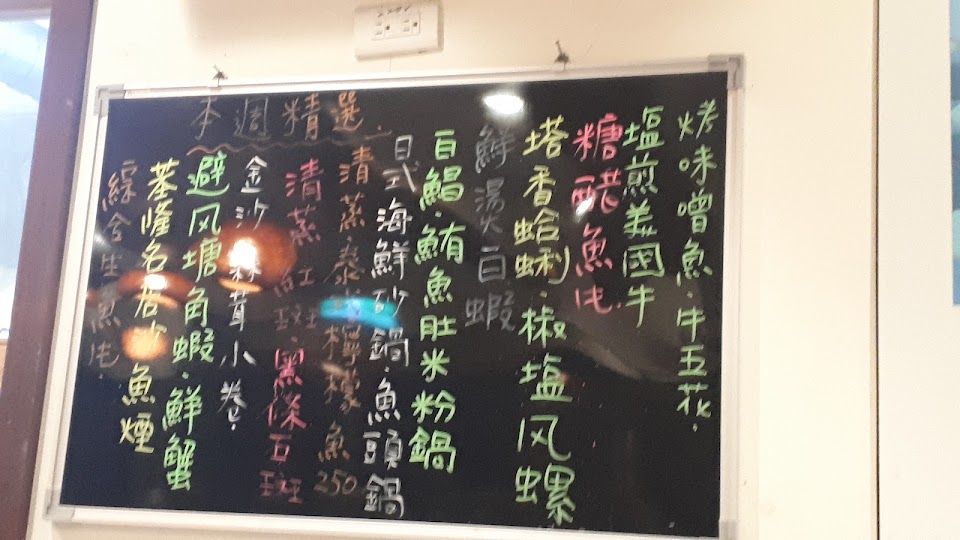 本週精選
烤味噌魚.牛五花.
塩煎美國牛
糖醋魚㐵.
塔香蛤蜊.椒塩风螺
鮮燙白蝦
白鯧.鮪魚肚米粉鍋
日式海鮮砂鍋.魚頭鍋
清蒸泰式檸檬魚250
清蒸紅斑.黑條石斑
金沙 茸小卷.
避风塘角蝦.鮮蟹
基隆名店沙魚煙
綜合生魚